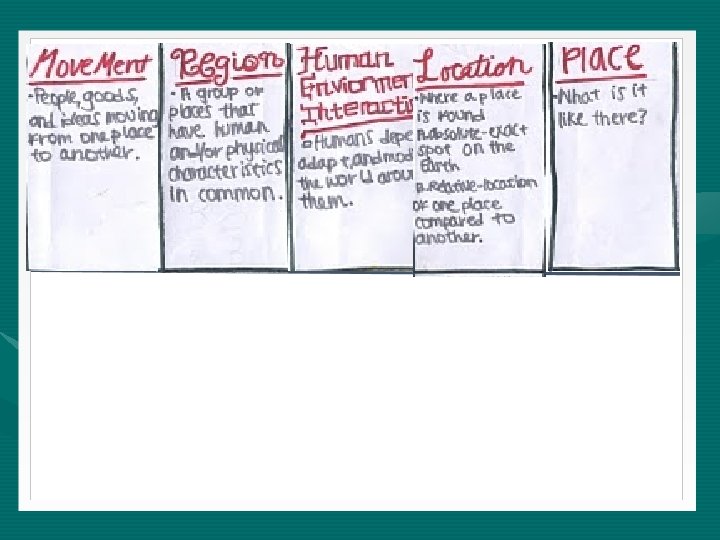 Movement
-People, goods,
and ideas moving
from one place
to another.
Region
- A group of
places that
have human
and/or physical
characteristics
in common.
Human
Enviormen
Interactio
Humans depe
adapt, and mod
the world arou
them.
Location
-Where a place
is found
A.absolute-exact
spot on the
Earth
B.Relative-location
of one place
compared to
another.
Place
-What is it
like there?